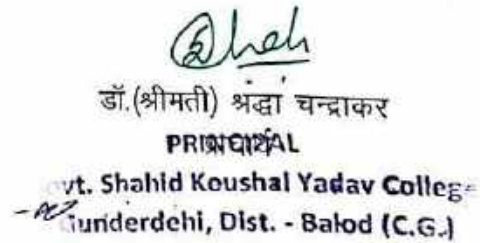 डॉ.(श्रीमती) श्रद्धा चन्द्राकर
PRINCIPAL
vt. Shahid Koushal Yadav Colleg
Gunderdehi, Dist. - Balod (C.G.)